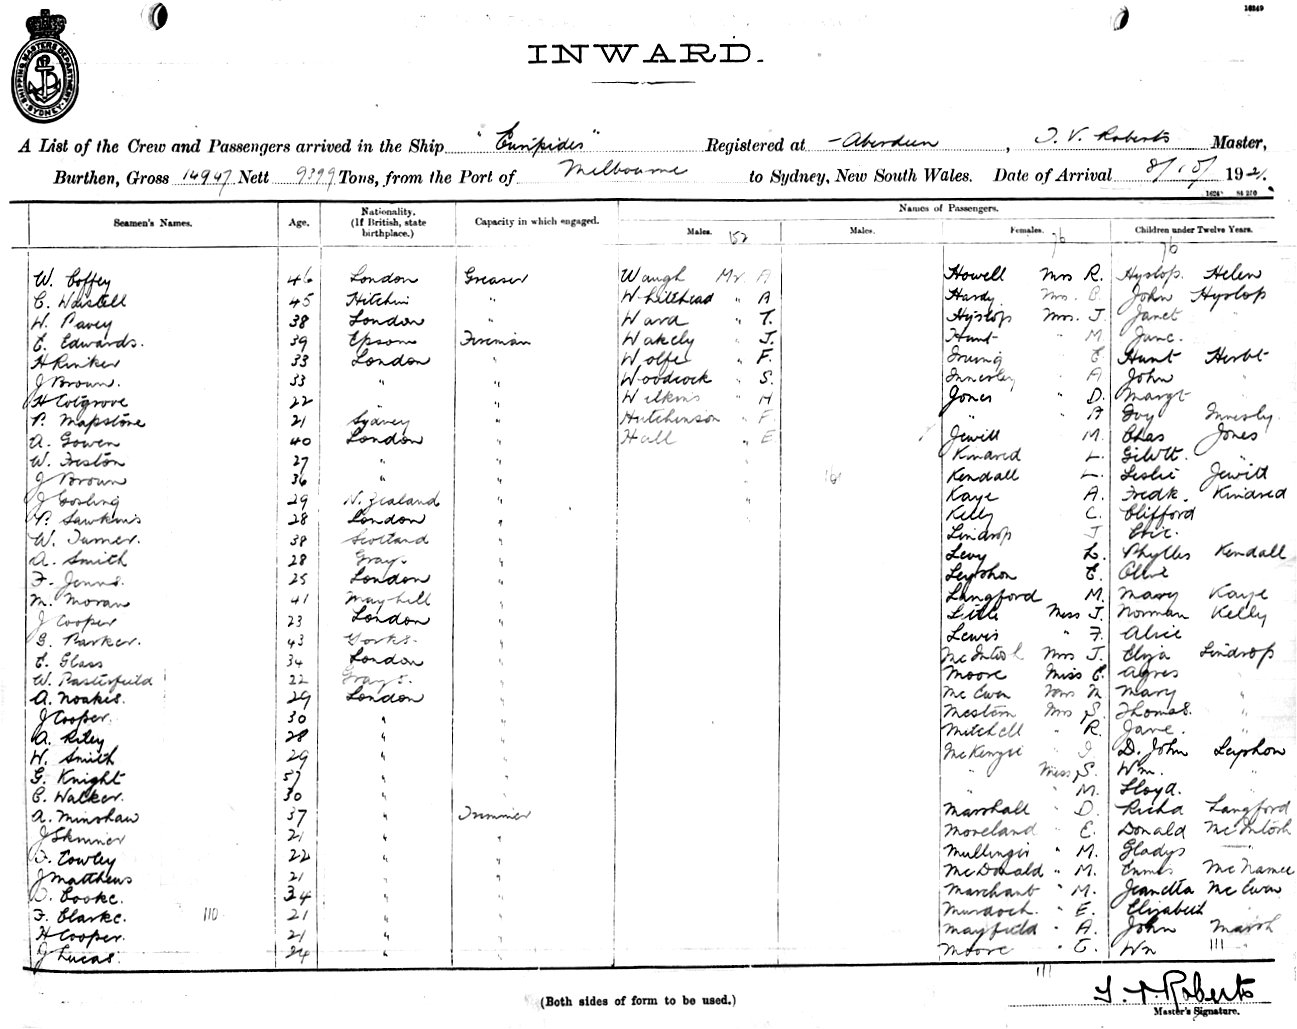 16249
SHIPPING MASTERS DEPARTMENT
SYDNEY
INWARD.
A List of the Crew and Passengers arrived in the Ship "Euripides" Registered at Aberdeen, T. V. Roberts Master,
Burthen, Gross 14947 Nett 9399 Tons, from the Port of Melbourne to Sydney, New South Wales. Date of Arrival 192
Names of Passengers.
Seamen's Names. Age. Nationality. (If British, state birthplace.) Capacity in which engaged. Males. 152 Males. Females. 76 Children under Twelve Years. 76
W. Coffey 46 London Greaser Waugh Mr. A Howell Mrs R. Hyslop. Helen
C. Waistell 45 Hitchin " Whitehead " A Hardy Mrs. B. John Hyslop
W. Pavey 38 London " Ward " T. Hyslop Mrs. J. Janet "
E. Edwards. 39 Epsom Fireman Wakely " J. Hunt " M June. "
H Riniker 33 London " Wolfe " F. Irving " E Hunt Herbt
J Brown. 33 " " Woodcock " S. Innesley " A John "
H Cotgrove 22 " " Wilkins " H Jones " D. Margt "
P. Mapstone 21 Sydney " Hutchinson " F " " A Ivy Innesly.
A. Gowen 40 London " Hall " E Jewitt M. Chas Jones
W. Friston 27 " " " Kindred L. Gilbt. "
J Brown 36 " " " 16 Kendall L. Leslie Jewitt
J Gosling 29 N. Zealand " " Kaye A. Fredk. Kindred
P. Sawkins 28 London " " Kelly C. Clifford
W. Turner. 38 Scotland " Lindrop J Eric.
A. Smith 28 Grays " Levy L. Phyllis Kendall
F. Jenns. 25 London " Leyshon E. Olive
M. Moran 41 Mayhill " Langford M. Mary Kaye
J Cooper 23 London " Little Miss J. Norman Kelly
G. Parker. 43 Yorks. " Lewis " F. Alice
E. Glass 34 London " McIntosh Mrs J. Eliza Lindrop
W. Pasterfield 22 Grays. " Moore Miss E Agnes "
A. Noakes. 29 London " McEwen Mrs M Mary "
J Cooper. 30 " " Meston Mrs S. Thomas. "
A. Riley 28 " " Mitchell " R. Jane. "
W. Smith 29 " " McKenzie " I D. John Leyshon
G. Knight 57 " " " Miss S. Wm. "
C. Walker. 30 " " " " M. Lloyd. "
A. Minshaw 37 " Trimmer Marshall " D. Richd Langford
J Skinner 21 " " Moreland " E. Donald McIntosh
Cowley 22 " " Mullingir " M. Gladys "
J Matthews 21 " " McDonald " M. McNamee
Cooke. 34 " " Marchant " M. Jeanetta McEwan
F. Clarke. 110 21 " " Murdoch. " E. Elizabeth "
H Cooper. 21 " " Mayfield " A. John Marsh
J Lucas. 24 " " Moore " Wm 111 "
111
(Both sides of form to be used.)
T. V. Roberts
Master's Signature.